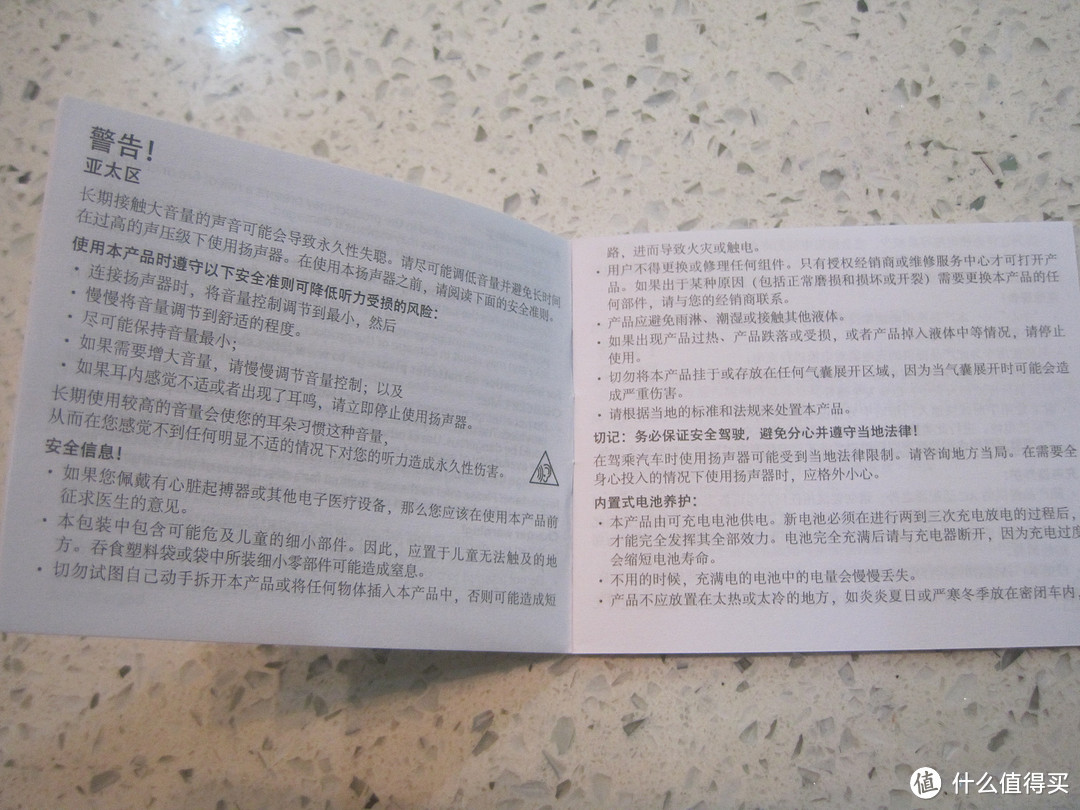 警告!
亚太区
长期接触大音量的声音可能会导致永久性失聪。请尽可能调低音量并避免长时间
在过高的声压级下使用扬声器。在使用本扬声器之前,请阅读下面的安全准则。
使用本产品时遵守以下安全准则可降低听力受损的风险:
• 连接扬声器时,将音量控制调节到最小,然后
• 慢慢将音量调节到舒适的程度。
• 尽可能保持音量最小;
• 如果需要增大音量,请慢慢调节音量控制;以及
• 如果耳内感觉不适或者出现了耳鸣,请立即停止使用扬声器。
长期使用较高的音量会使您的耳朵习惯这种音量,
从而在您感觉不到任何明显不适的情况下对您的听力造成永久性伤害。
安全信息!
• 如果您佩戴有心脏起搏器或其他电子医疗设备,那么您应该在使用本产品前
征求医生的意见。
• 本包装中包含可能危及儿童的细小部件。因此,应置于儿童无法触及的地
方。吞食塑料袋或袋中所装细小零部件可能造成窒息。
• 切勿试图自己动手拆开本产品或将任何物体插入本产品中,否则可能造成短
路,进而导致火灾或触电。
• 用户不得更换或修理任何组件。只有授权经销商或维修服务中心才可打开产
品。如果出于某种原因(包括正常磨损和损坏或开裂)需要更换本产品的任
何部件,请与您的经销商联系。
• 产品应避免雨淋、潮湿或接触其他液体。
• 如果出现产品过热、产品跌落或受损,或者产品掉入液体中等情况,请停止
使用。
• 切勿将本产品挂于或存放在任何气囊展开区域,因为当气囊展开时可能会造
成严重伤害。
• 请根据当地的标准和法规来处置本产品。
切记:务必保证安全驾驶,避免分心并遵守当地法律!
在驾乘汽车时使用扬声器可能受到当地法律限制。请咨询地方当局。在需要全
身心投入的情况下使用扬声器时,应格外小心。
内置式电池养护:
• 本产品由可充电电池供电。新电池必须在进行两到三次充电放电的过程后,
才能完全发挥其全部效力。电池完全充满后请与充电器断开,因为充电过度
会缩短电池寿命。
• 不用的时候,充满电的电池中的电量会慢慢丢失。
• 产品不应放置在太热或太冷的地方,如炎炎夏日或严寒冬季放在密闭车内,
值 什么值得买